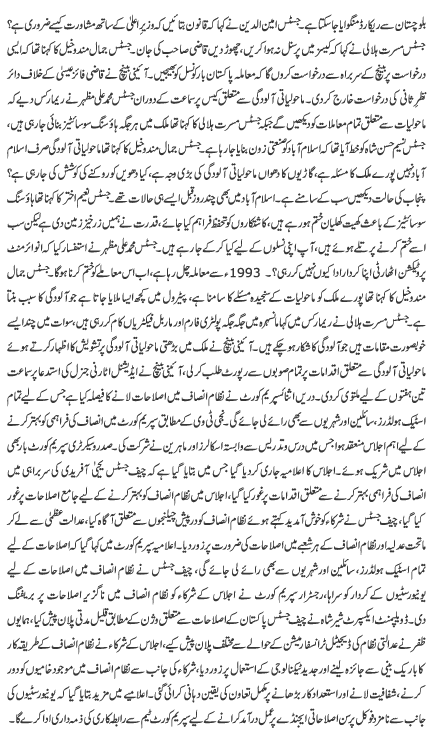 بلوچستان سے ریکارڈ منگوایا جا سکتا ہے۔ جسٹس امین الدین نے کہا کہ قانون بتائیں کہ وزیراعلیٰ کے ساتھ مشاورت کیسے ضروری ہے؟
جسٹس مسرت ہلالی نے کہا کہ کیسز میں پرسنل نہ ہوا کریں، چھوڑ دیں قاضی صاحب کی جان۔ جسٹس جمال مندوخیل کا کہنا تھا کہ ایسی
درخواست پر بینچ کے سربراہ سے درخواست کروں گا کہ معاملہ پاکستان بار کونسل کو بھیجیں۔ آئینی بینچ نے قاضی فائز عیسیٰ کے خلاف دائر
نظر ثانی کی درخواست خارج کر دی۔ ماحولیاتی آلودگی سے متعلق کیس پر سماعت کے دوران جسٹس محمد علی مظہر نے ریمارکس دیے کہ
ماحولیات سے متعلق تمام معاملات کو دیکھیں گے جبکہ جسٹس مسرت ہلالی کا کہنا تھا ملک میں ہر جگہ ہاؤسنگ سوسائٹیز بنائی جا رہی ہیں،
جسٹس نسیم حسن شاہ کو خط آیا تھا کہ اسلام آباد کو صنعتی زون بنایا جا رہا ہے۔ جسٹس جمال مندوخیل کا کہنا تھا ماحولیاتی آلودگی صرف اسلام
آباد نہیں پورے ملک کا مسئلہ ہے، گاڑیوں کا دھواں ماحولیاتی آلودگی کی بڑی وجہ ہے، کیا دھویں کو روکنے کی کوشش کی جا رہی ہے؟
پنجاب کی حالت دیکھیں سب کے سامنے ہے۔ اسلام آباد میں بھی چند روز قبل ایسے ہی حالات تھے جسٹس نعیم اختر کا کہنا تھا ہاؤسنگ
سوسائٹیز کے باعث کھیت کھلیان ختم ہو رہے ہیں، کاشتکاروں کو تحفظ فراہم کیا جائے، قدرت نے ہمیں زرخیز زمین دی ہے لیکن سب
اسے ختم کرنے پر تلے ہوئے ہیں، آپ اپنی نسلوں کے لیے کیا کر کے جا رہے ہیں۔ جسٹس محمد علی مظہر نے استفسار کیا کہ انوائرمنٹ
پروٹیکشن اتھارٹی اپنا کردار ادا کیوں نہیں کر رہی؟۔ 1993ء سے معاملہ چل رہا ہے، اب اس معاملے کو ختم کرنا ہو گا۔ جسٹس جمال
مندوخیل کا کہنا تھا پورے ملک کو ماحولیات کے سنجیدہ مسئلے کا سامنا ہے، پیٹرول میں کچھ ایسا ملایا جاتا ہے جو آلودگی کا سبب بنتا
ہے۔ جسٹس مسرت ہلالی نے ریمارکس میں کہا مانسہرہ میں جگہ جگہ پولٹری فارم اور ماربل فیکٹریاں کام کر رہی ہیں، سوات میں چند ایسے
خوبصورت مقامات ہیں جو آلودگی کا شکار ہو چکے ہیں۔ آئینی بینچ نے ملک میں بڑھتی ماحولیاتی آلودگی پر تشویش کا اظہار کرتے ہوئے
ماحولیاتی آلودگی سے متعلق اقدامات پر تمام صوبوں سے رپورٹ طلب کر لی، آئینی بینچ نے ایڈیشنل اٹارنی جنرل کی استدعا پر سماعت
تین ہفتوں کے لیے ملتوی کر دی۔ دریں اثنا سپریم کورٹ نے نظام انصاف میں اصلاحات لانے کا فیصلہ کیا ہے جس کے لیے تمام اسٹیک
ہولڈرز، سائلین اور شہریوں سے بھی رائے لی جائے گی۔ نجی ٹی وی کے مطابق سپریم کورٹ میں انصاف کی فراہمی کو بہتر کرنے
کے لیے اہم اجلاس منعقد ہوا جس میں درس و تدریس سے وابستہ اسکالرز اور ماہرین نے شرکت کی۔ صدر و سیکرٹری سپریم کورٹ بار بھی
اجلاس میں شریک ہوئے۔ اجلاس کا اعلامیہ جاری کر دیا گیا جس میں بتایا گیا ہے کہ چیف جسٹس یحییٰ آفریدی کی سربراہی میں
انصاف کی فراہمی بہتر کرنے سے متعلق اقدامات پر غور کیا گیا، اجلاس میں نظام انصاف کو بہتر کرنے کے لیے جامع اصلاحات پر غور
کیا گیا، چیف جسٹس نے شرکاء کو خوش آمدید کہتے ہوئے نظام انصاف کو درپیش چیلنجوں سے متعلق آگاہ کیا، عدالت عظمیٰ سے لے کر
ماتحت عدلیہ اور نظام انصاف کے ہر شعبے میں اصلاحات کی ضرورت پر زور دیا۔ اعلامیہ سپریم کورٹ میں کہا گیا کہ اصلاحات کے لیے
تمام اسٹیک ہولڈرز، سائلین اور شہریوں سے بھی رائے لی جائے گی، چیف جسٹس نے نظام انصاف میں اصلاحات کے لیے
یونیورسٹیوں کے کردار کو سراہا، رجسٹرار سپریم کورٹ نے اجلاس کے شرکاء کو نظام انصاف میں ناگزیر اصلاحات پر بریفنگ
دی۔ ڈویلپمنٹ ایکسپرٹ شیر شاہ نے چیف جسٹس پاکستان کے اصلاحات سے متعلق وژن کے مطابق قلیل مدتی پلان پیش کیا، ہمایوں
ظفر نے عدالتی نظام کی ڈیجیٹل ٹرانسفارمیشن کے حوالے سے مختلف پلان پیش کیے، اجلاس کے شرکاء نے نظام انصاف کے طریقہ کار
کا باریک بینی سے جائزہ لینے اور جدید ٹیکنالوجی کے استعمال پر زور دیا، شرکاء کی جانب سے نظام انصاف میں موجود خامیوں کو دور
کرنے، شفافیت لانے اور استعداد کار بڑھانے پر مکمل تعاون کی یقین دہانی کرائی گئی۔ اعلامیے میں مزید بتایا گیا کہ یونیورسٹیوں کی
جانب سے نامزد فوکل پرسن اصلاحاتی ایجنڈے پر عمل درآمد کرنے کے لیے سپریم کورٹ ٹیم سے رابطہ کاری کی ذمہ داری ادا کرے گا۔